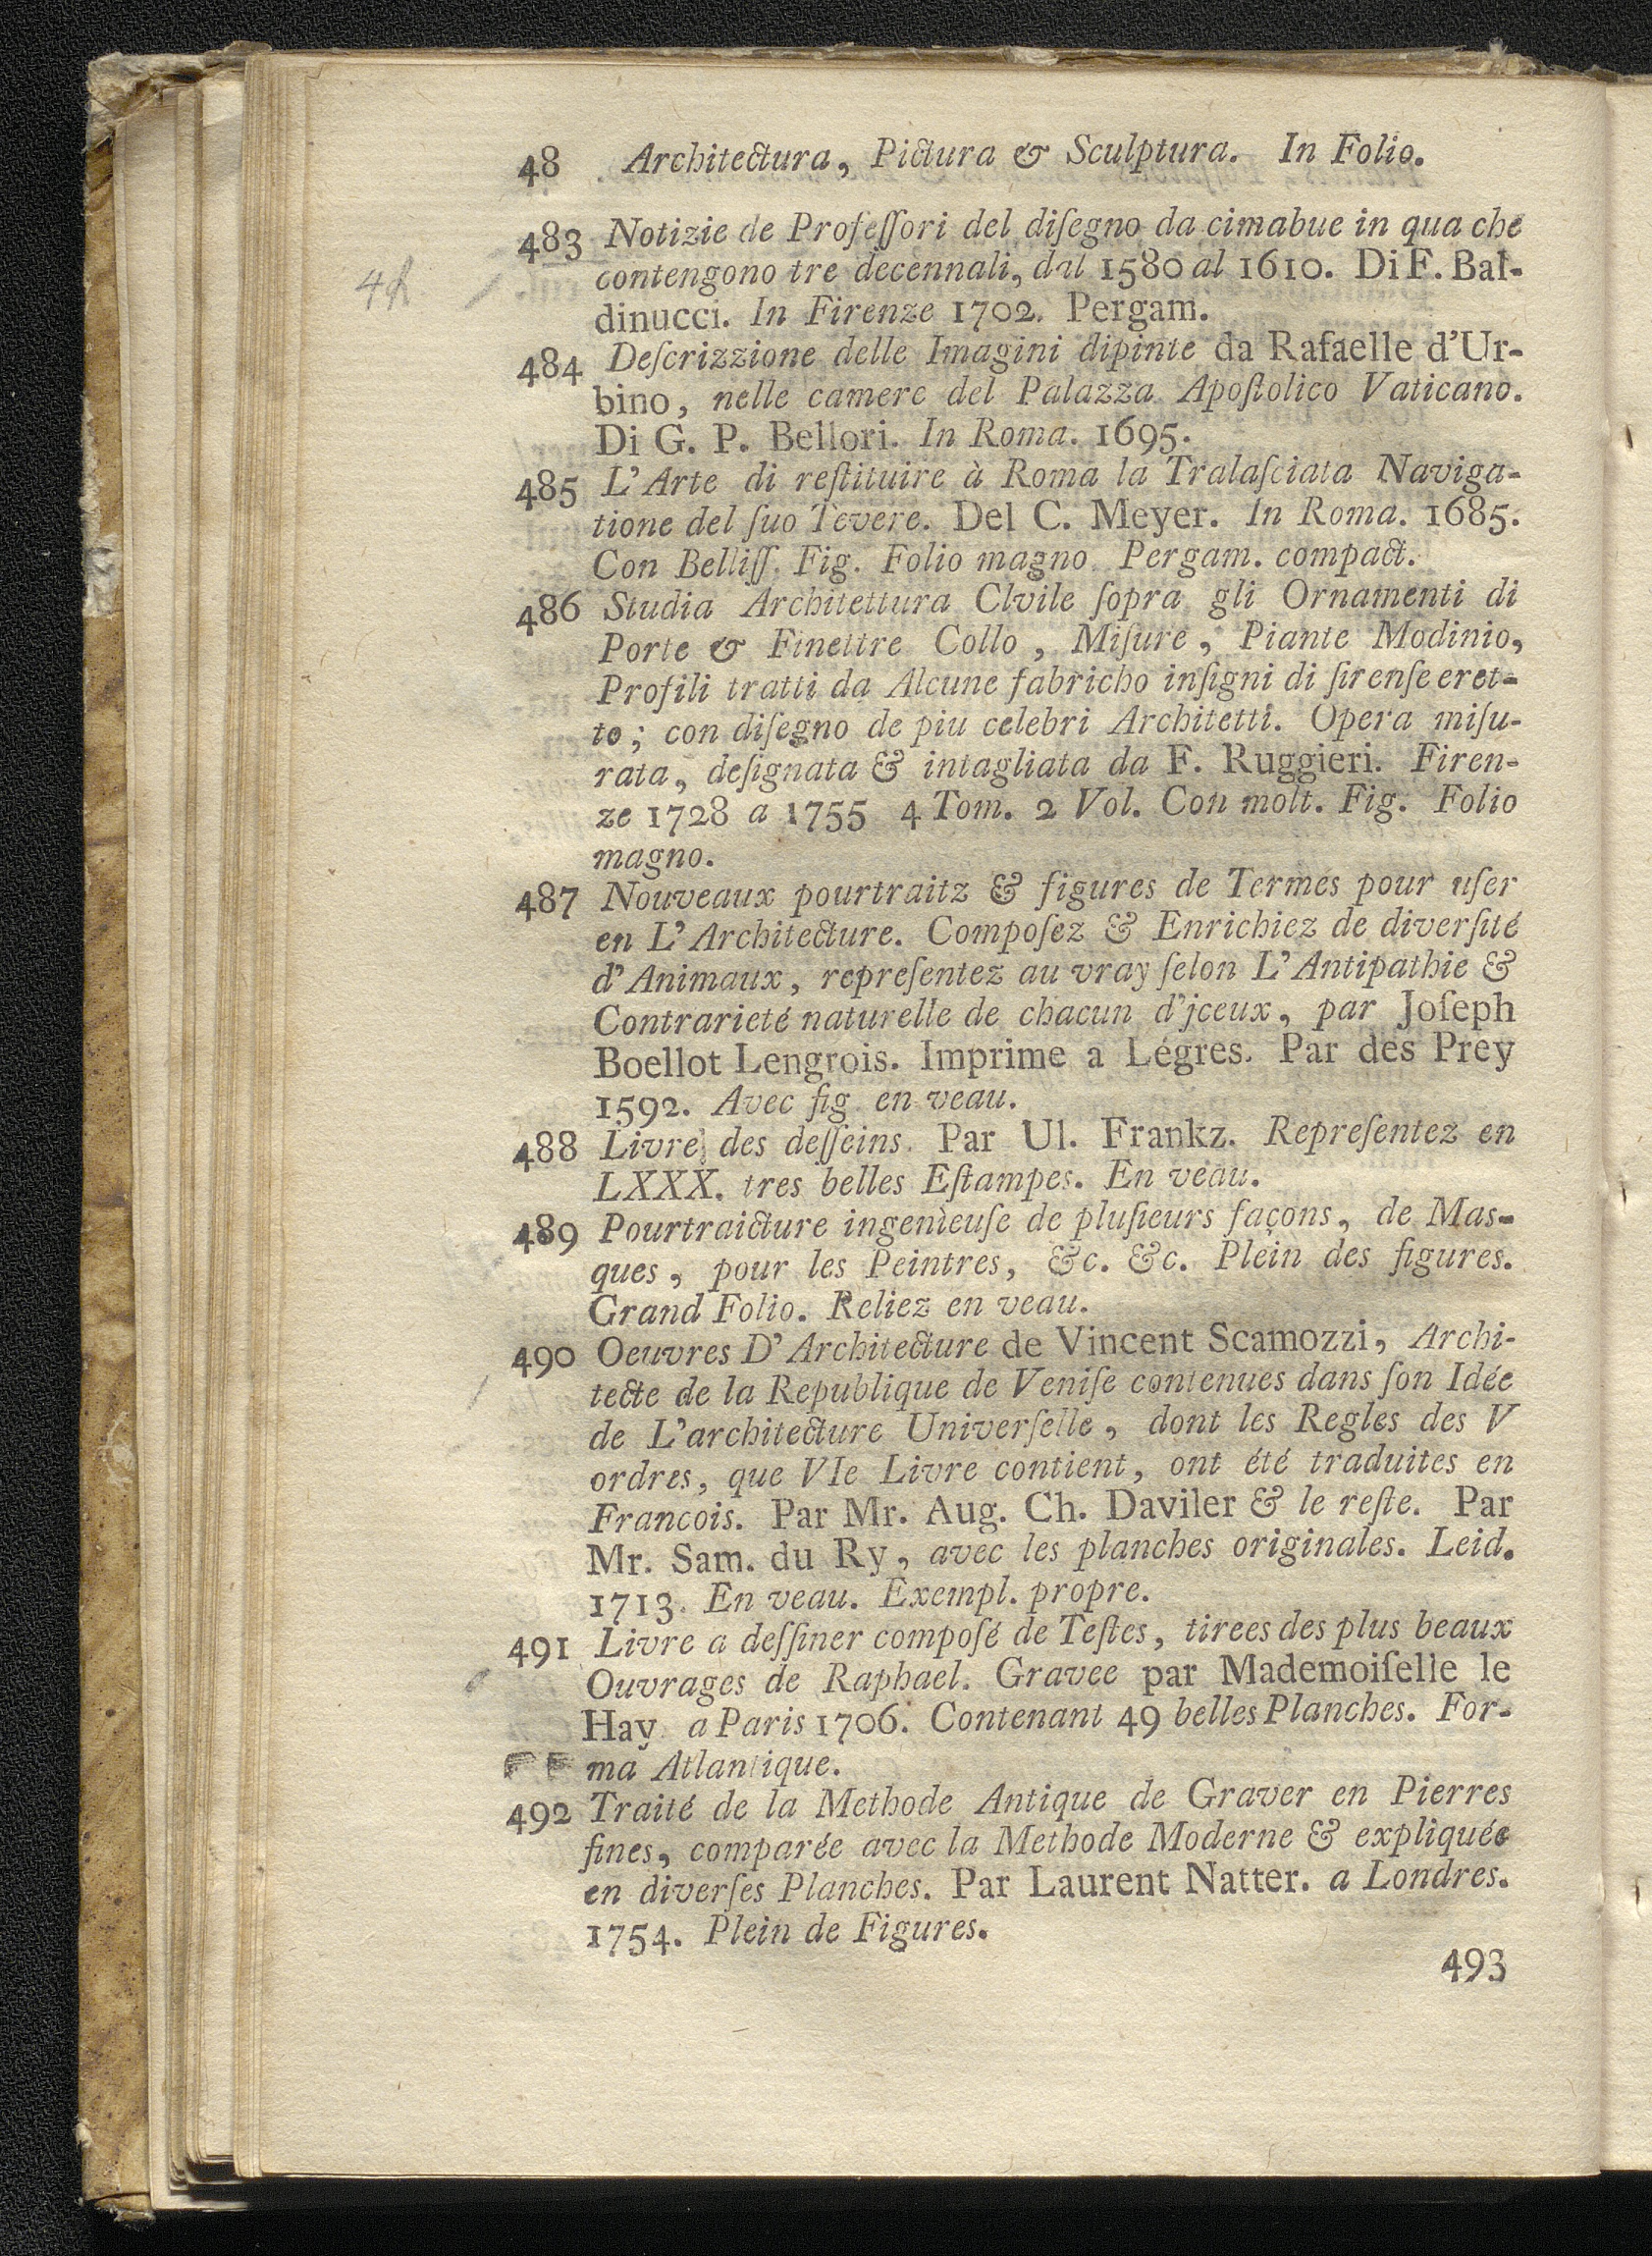 48 Architectura, Pictura & Sculptura. In Folio.
483 Notizie de Profeſſori del diſegno da cimabue in qua che
contengono tre decennali, dal 1580 al 1610. Di F. Bal-
dinucci. In Firenze 1702. Pergam.
484 Deſcrizzione delle Imagini dipinte da Rafaelle d'Ur-
bino, nelle camere del Palazza Apoſtolico Vaticano.
Di G. P. Bellori. In Roma. 1695.
485 L'Arte di reſtituire à Roma la Tralaſciata Naviga-
tione del ſuo Tevere. Del C. Meyer. In Roma. 1685.
Con Belliſſ. Fig. Folio magno. Pergam. compact.
486 Studia Architettura Clvile ſopra gli Ornamenti di
Porte & Finettre Collo, Miſure, Piante Modinio,
Profili tratti da Alcune fabricho inſigni di ſirenſe eret-
to; con diſegno de piu celebri Architetti. Opera miſu-
rata, deſignata & intagliata da F. Ruggieri. Firen-
ze 1728 a 1755 4 Tom. 2 Vol. Con molt. Fig. Folio
magno.
487 Nouveaux pourtraitz & figures de Termes pour uſer
en L'Architecture. Compoſez & Enrichiez de diverſité
d'Animaux, repreſentez au vray ſelon L'Antipathie &
Contrarieté naturelle de chacun d'jceux, par Joſeph
Boellot Lengrois. Imprime a Légres. Par des Prey
1592. Avec fig. en veau.
488 Livre des deſſeins. Par Ul. Frankz. Repreſentez en
LXXX. tres belles Eſtampes. En veau.
489 Pourtraicture ingenieuſe de pluſieurs façons, de Mas-
ques, pour les Peintres, &c. &c. Plein des figures.
Grand Folio. Reliez en veau.
490 Oeuvres D'Architecture de Vincent Scamozzi, Archi-
tecte de la Republique de Veniſe contenues dans ſon Idée
de L'architecture Univerſelle, dont les Regles des V
ordres, que VIe Livre contient, ont été traduites en
Francois. Par Mr. Aug. Ch. Daviler & le reſte. Par
Mr. Sam. du Ry, avec les planches originales. Leid.
1713. En veau. Exempl. propre.
491 Livre a deſſiner compoſé de Teſtes, tirees des plus beaux
Ouvrages de Raphael. Gravee par Mademoiſelle le
Hay a Paris 1706. Contenant 49 belles Planches. For-
ma Atlantique.
492 Traité de la Methode Antique de Graver en Pierres
fines, comparée avec la Methode Moderne & expliquée
en diverſes Planches. Par Laurent Natter. a Londres.
1754. Plein de Figures.
493